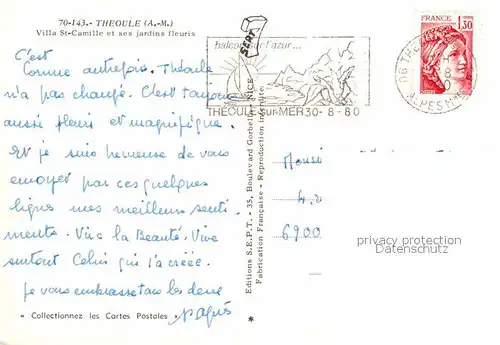 70-143.- THEOULE (A.-M.)
Villa St-Camille et ses jardins fleuris
C'est
Comme autrefois. Théoule
n'a pas changé. C'est toujours
aussi fleuri et magnifique.
Et je suis heureuse de vous
envoyer par ces quelques
lignes mes meilleurs senti-
ments. Vive la Beauté. Vive
surtout Celui qui l'a créée.
Je vous embrasse tous les deux
« Collectionnez les Cartes Postales »
Agnès
Editions S.E.P.T. - 35, Boulevard Gorbella - NICE
Fabrication Française - Reproduction interdite
SEPT
balcon sur l'azur...
THEOULE-sur-MER 30-8-80
FRANCE
1,30
06 THE
ALPES MMES
Monsi
6900
privacy protection
watermark